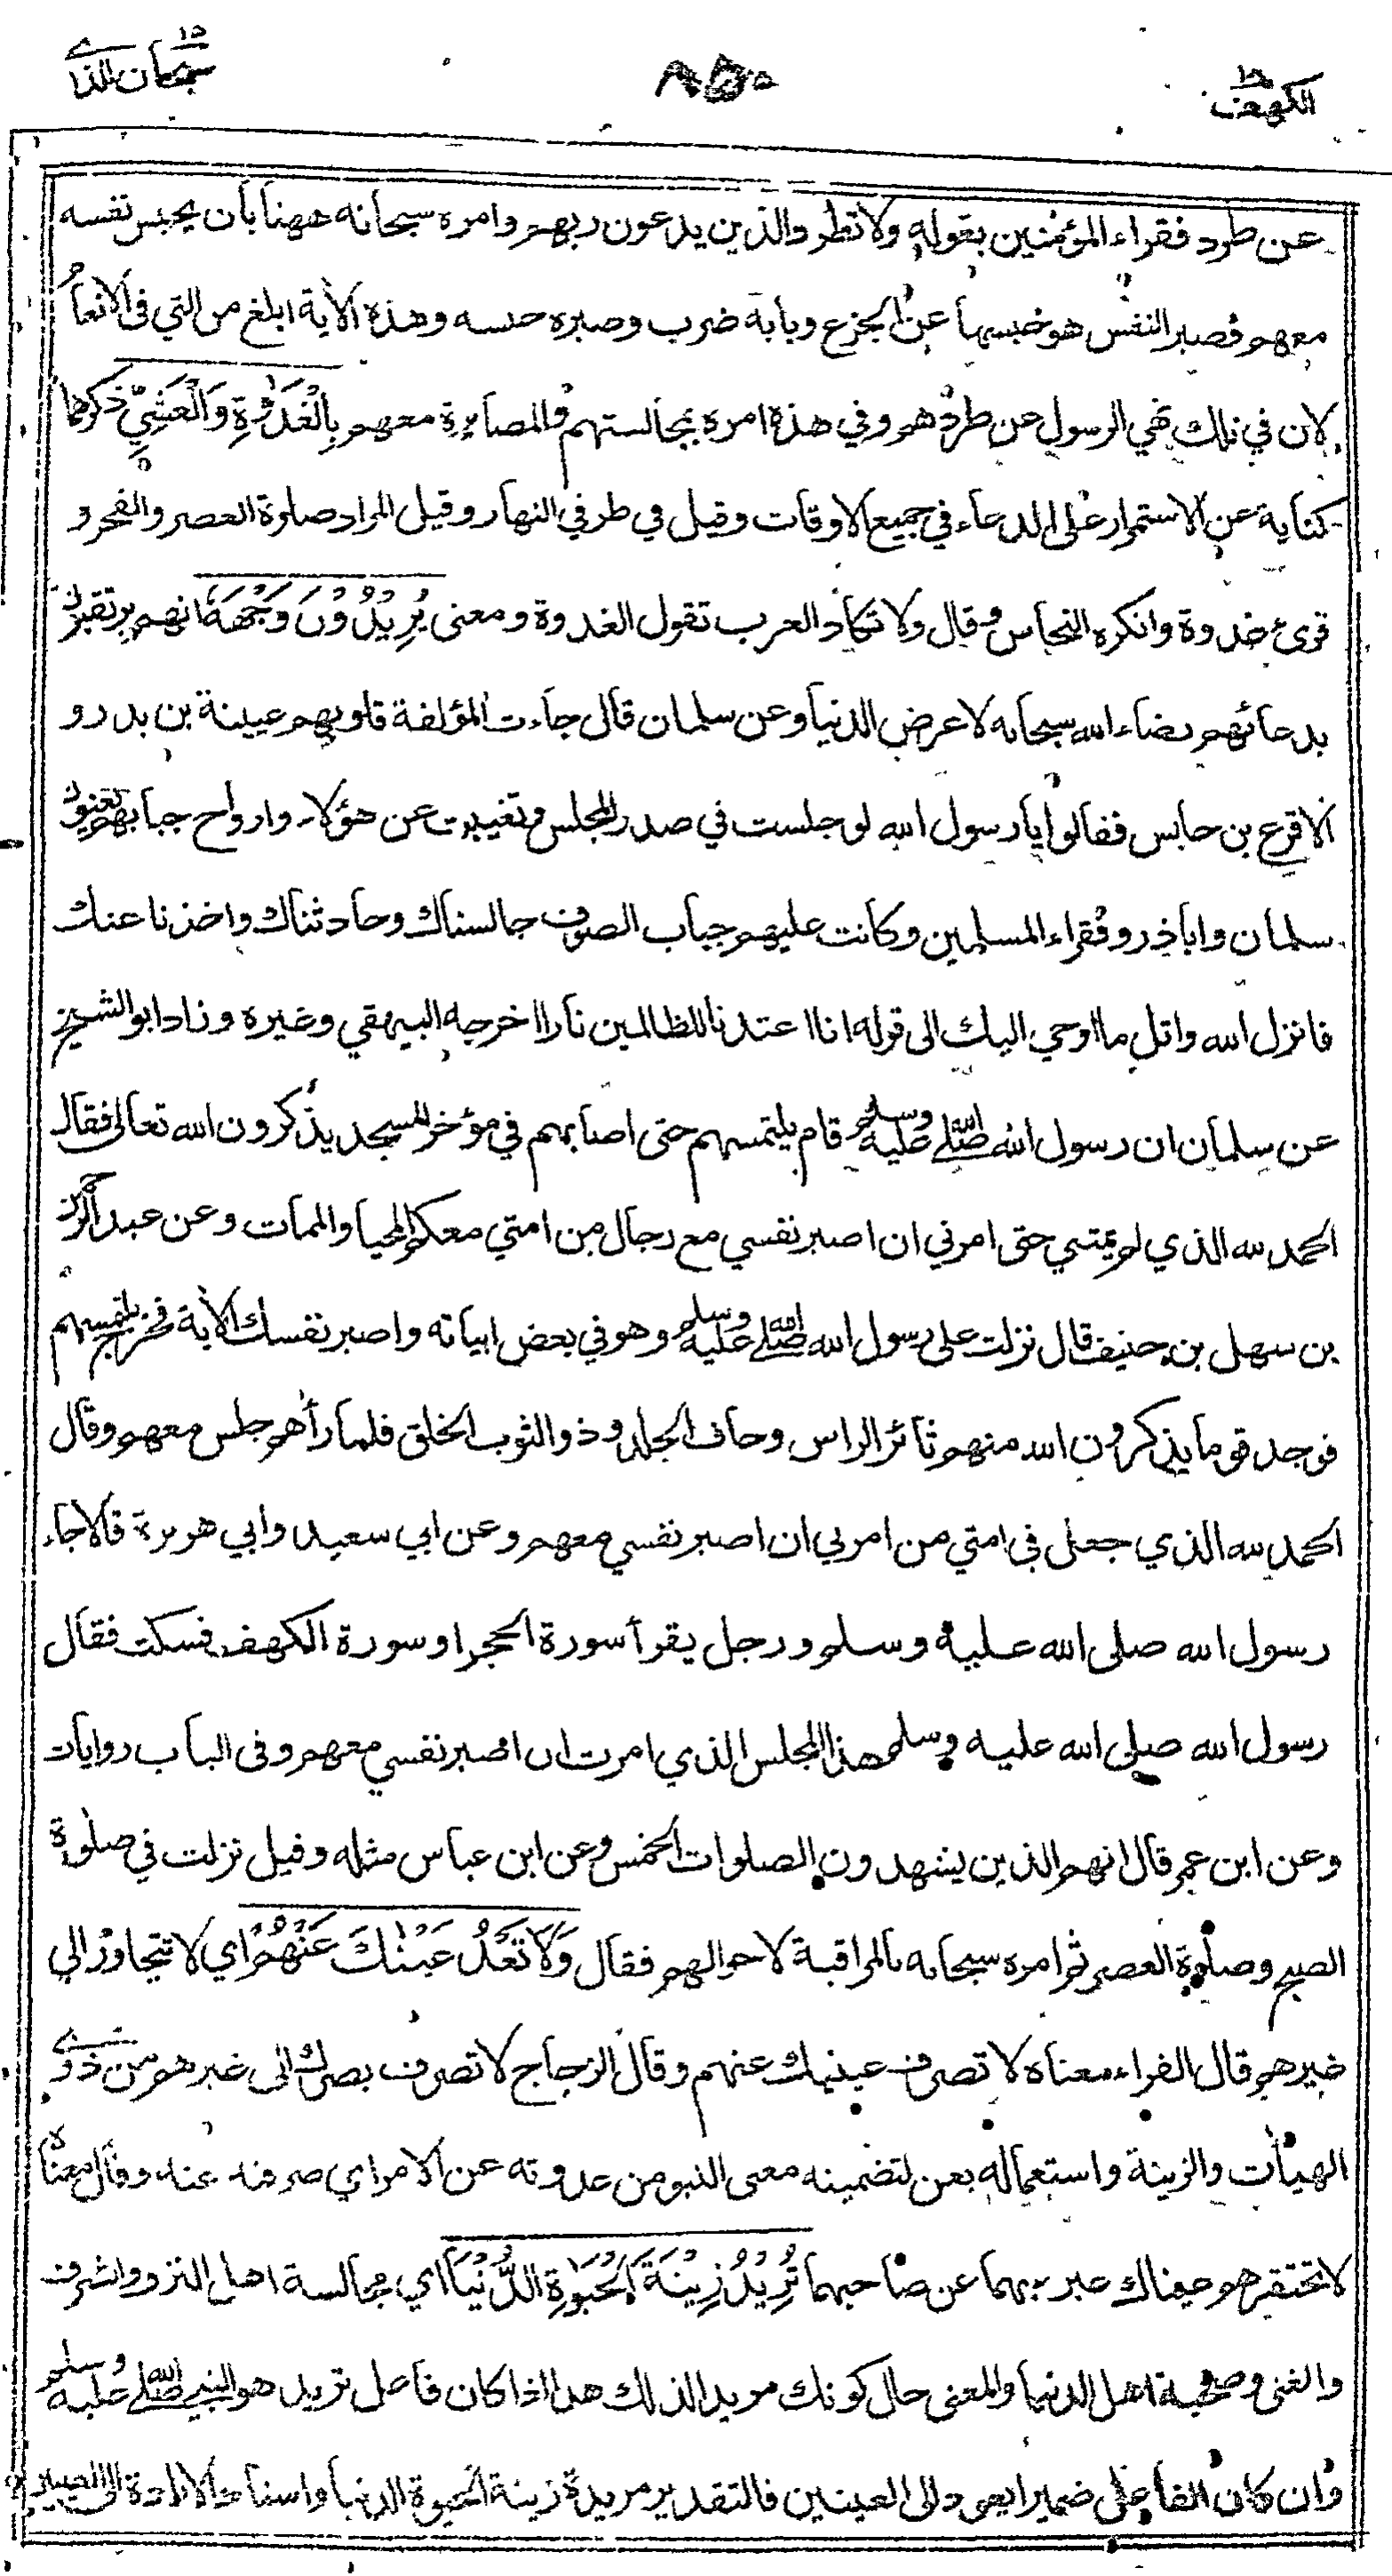 الكهف ١٨
٨٥٠
سبحان الذي ١٥
عن طرد فقراء المؤمنين بقوله ولا تطرد الذين يدعون ربهم وامره سبحانه ههنا بأن يحبس نفسه
معهم فصبر النفس هو حبسها عن الجزع وبابه ضرب وصبره حبسه وهذه الآية ابلغ من التي في الانعام
لان في تلك نهي الرسول عن طردهم وفي هذه امره بمجالستهم والمصابرة معهم بِالْغَدٰوةِ وَالْعَشِيِّ ذكرهما
كناية عن الاستمرار على الدعاء في جميع الاوقات وقيل في طرفي النهار وقيل المراد صلوة العصر والفجر و
قرئ غدوة وانكره النحاس وقال ولا تكاد العرب تقول الغدوة ومعنى يُرِيْدُوْنَ وَجْهَهٗ انهم يريدون
بدعائهم رضاء الله سبحانه لا عرض الدنيا وعن سلمان قال جاءت المؤلفة قلوبهم عيينة بن بدر و
الاقرع بن حابس فقالوا يا رسول الله لو جلست في صدر المجلس وتغيبت عن هؤلاء وارواح جبابهم يعنون
سلمان واباذر وفقراء المسلمين وكانت عليهم جباب الصوف جالسناك وحادثناك واخذنا عنك
فانزل الله واتل ما اوحي اليك الى قوله انا اعتدنا للظالمين نارا اخرجه البيهقي وغيره وزاد ابو الشيخ
عن سلمان ان رسول الله صلى الله عليه وسلم قام يلتمسهم حتى اصابهم في مؤخر المسجد يذكرون الله تعالى فقال
الحمد لله الذي لم يمتني حتى امرني ان اصبر نفسي مع رجال من امتي معكم المحيا والممات وعن عبد الرحمن
بن سهل بن حنيف قال نزلت على رسول الله صلى الله عليه وسلم وهو في بعض ابياته واصبر نفسك الآية فخرج يلتمسهم
فوجد قوما يذكرون الله منهم ثائر الراس وجاف الجلد وذو الثوب الخلق فلما رأهم جلس معهم وقال
الحمد لله الذي جعل في امتي من امرني ان اصبر نفسي معهم وعن ابي سعيد وابي هريرة قالا جاء
رسول الله صلى الله عليه وسلم ورجل يقرأ سورة الحجر او سورة الكهف فسكت فقال
رسول الله صلى الله عليه وسلم هذا المجلس الذي امرت ان اصبر نفسي معهم وفي الباب روايات
وعن ابن عمر قال انهم الذين يشهدون الصلوات الخمس وعن ابن عباس مثله وقيل نزلت في صلوة
الصبح وصلوة العصر ثم امره سبحانه بالمراقبة لاحوالهم فقال وَلَا تَعْدُ عَيْنٰكَ عَنْهُمْ اي لا تتجاوز الى
غيرهم قال الفراء معناه لا تصرف عينيك عنهم وقال الزجاج لا تصرف بصرك الى غيرهم من ذوي
الهيأت والزينة واستعماله بعن لتضمينه معنى النبو من عدوته عن الامر اي صرفته عنه وقال معناه
لا تحتقرهم عيناك عبر بهما عن صاحبهما تُرِيْدُ زِيْنَةَ الْحَيٰوةِ الدُّنْيَا اي مجالسة اهل الشرف
والغنى وصحبة اهل الدنيا والمعنى حال كونك مريدا لذلك هذا اذا كان فاعل تريد هو النبي صلى الله عليه وسلم
وان كان الفاعل ضميرا يعود الى العينين فالتقدير مريدة زينة الحيوة الدنيا واسناد الارادة الى العينين